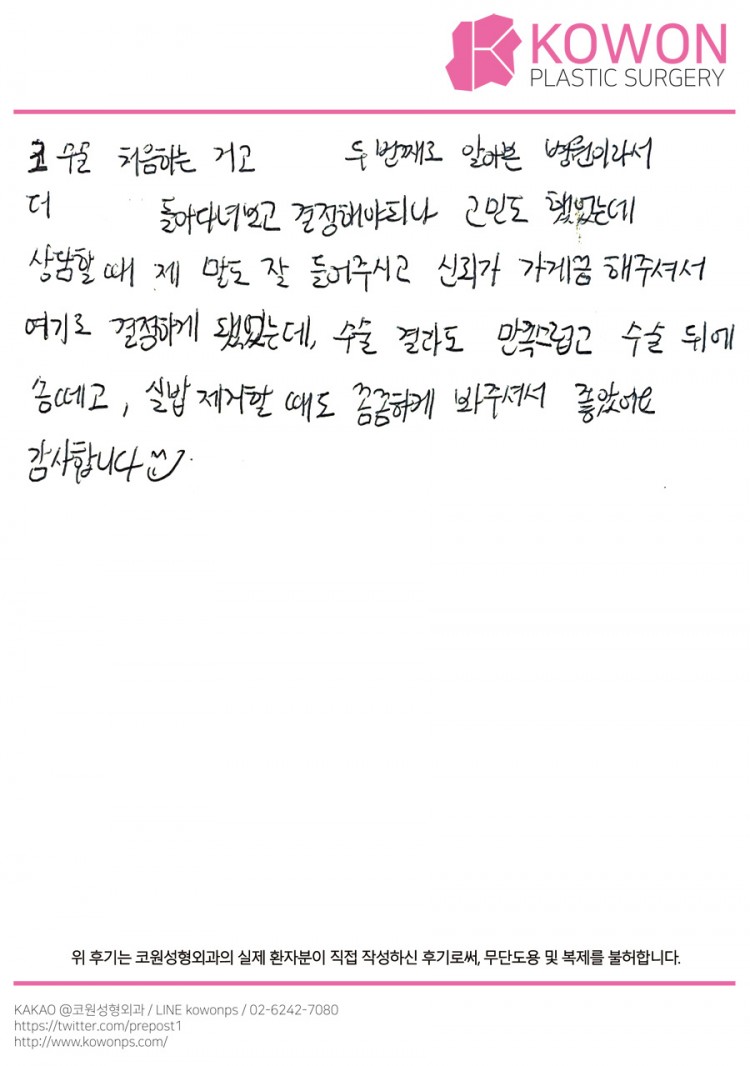 KOWON
PLASTIC SURGERY
코 수술 처음하는 거고 두 번째로 알아본 병원이라서
더 돌아다녀보고 결정해야되나 고민도 했었는데
상담할 때 제 말도 잘 들어주시고 신뢰가 가게끔 해주셔서
여기로 결정하게 됐었는데, 수술 결과도 만족스럽고 수술 뒤에
솜떼고, 실밥 제거할 때도 꼼꼼하게 봐주셔서 좋았어요
감사합니다
위 후기는 코원성형외과의 실제 환자분이 직접 작성하신 후기로써, 무단도용 및 복제를 불허합니다.
KAKAO @코원성형외과 / LINE kowonps / 02-6242-7080
https://twitter.com/prepost1
http://www.kowonps.com/